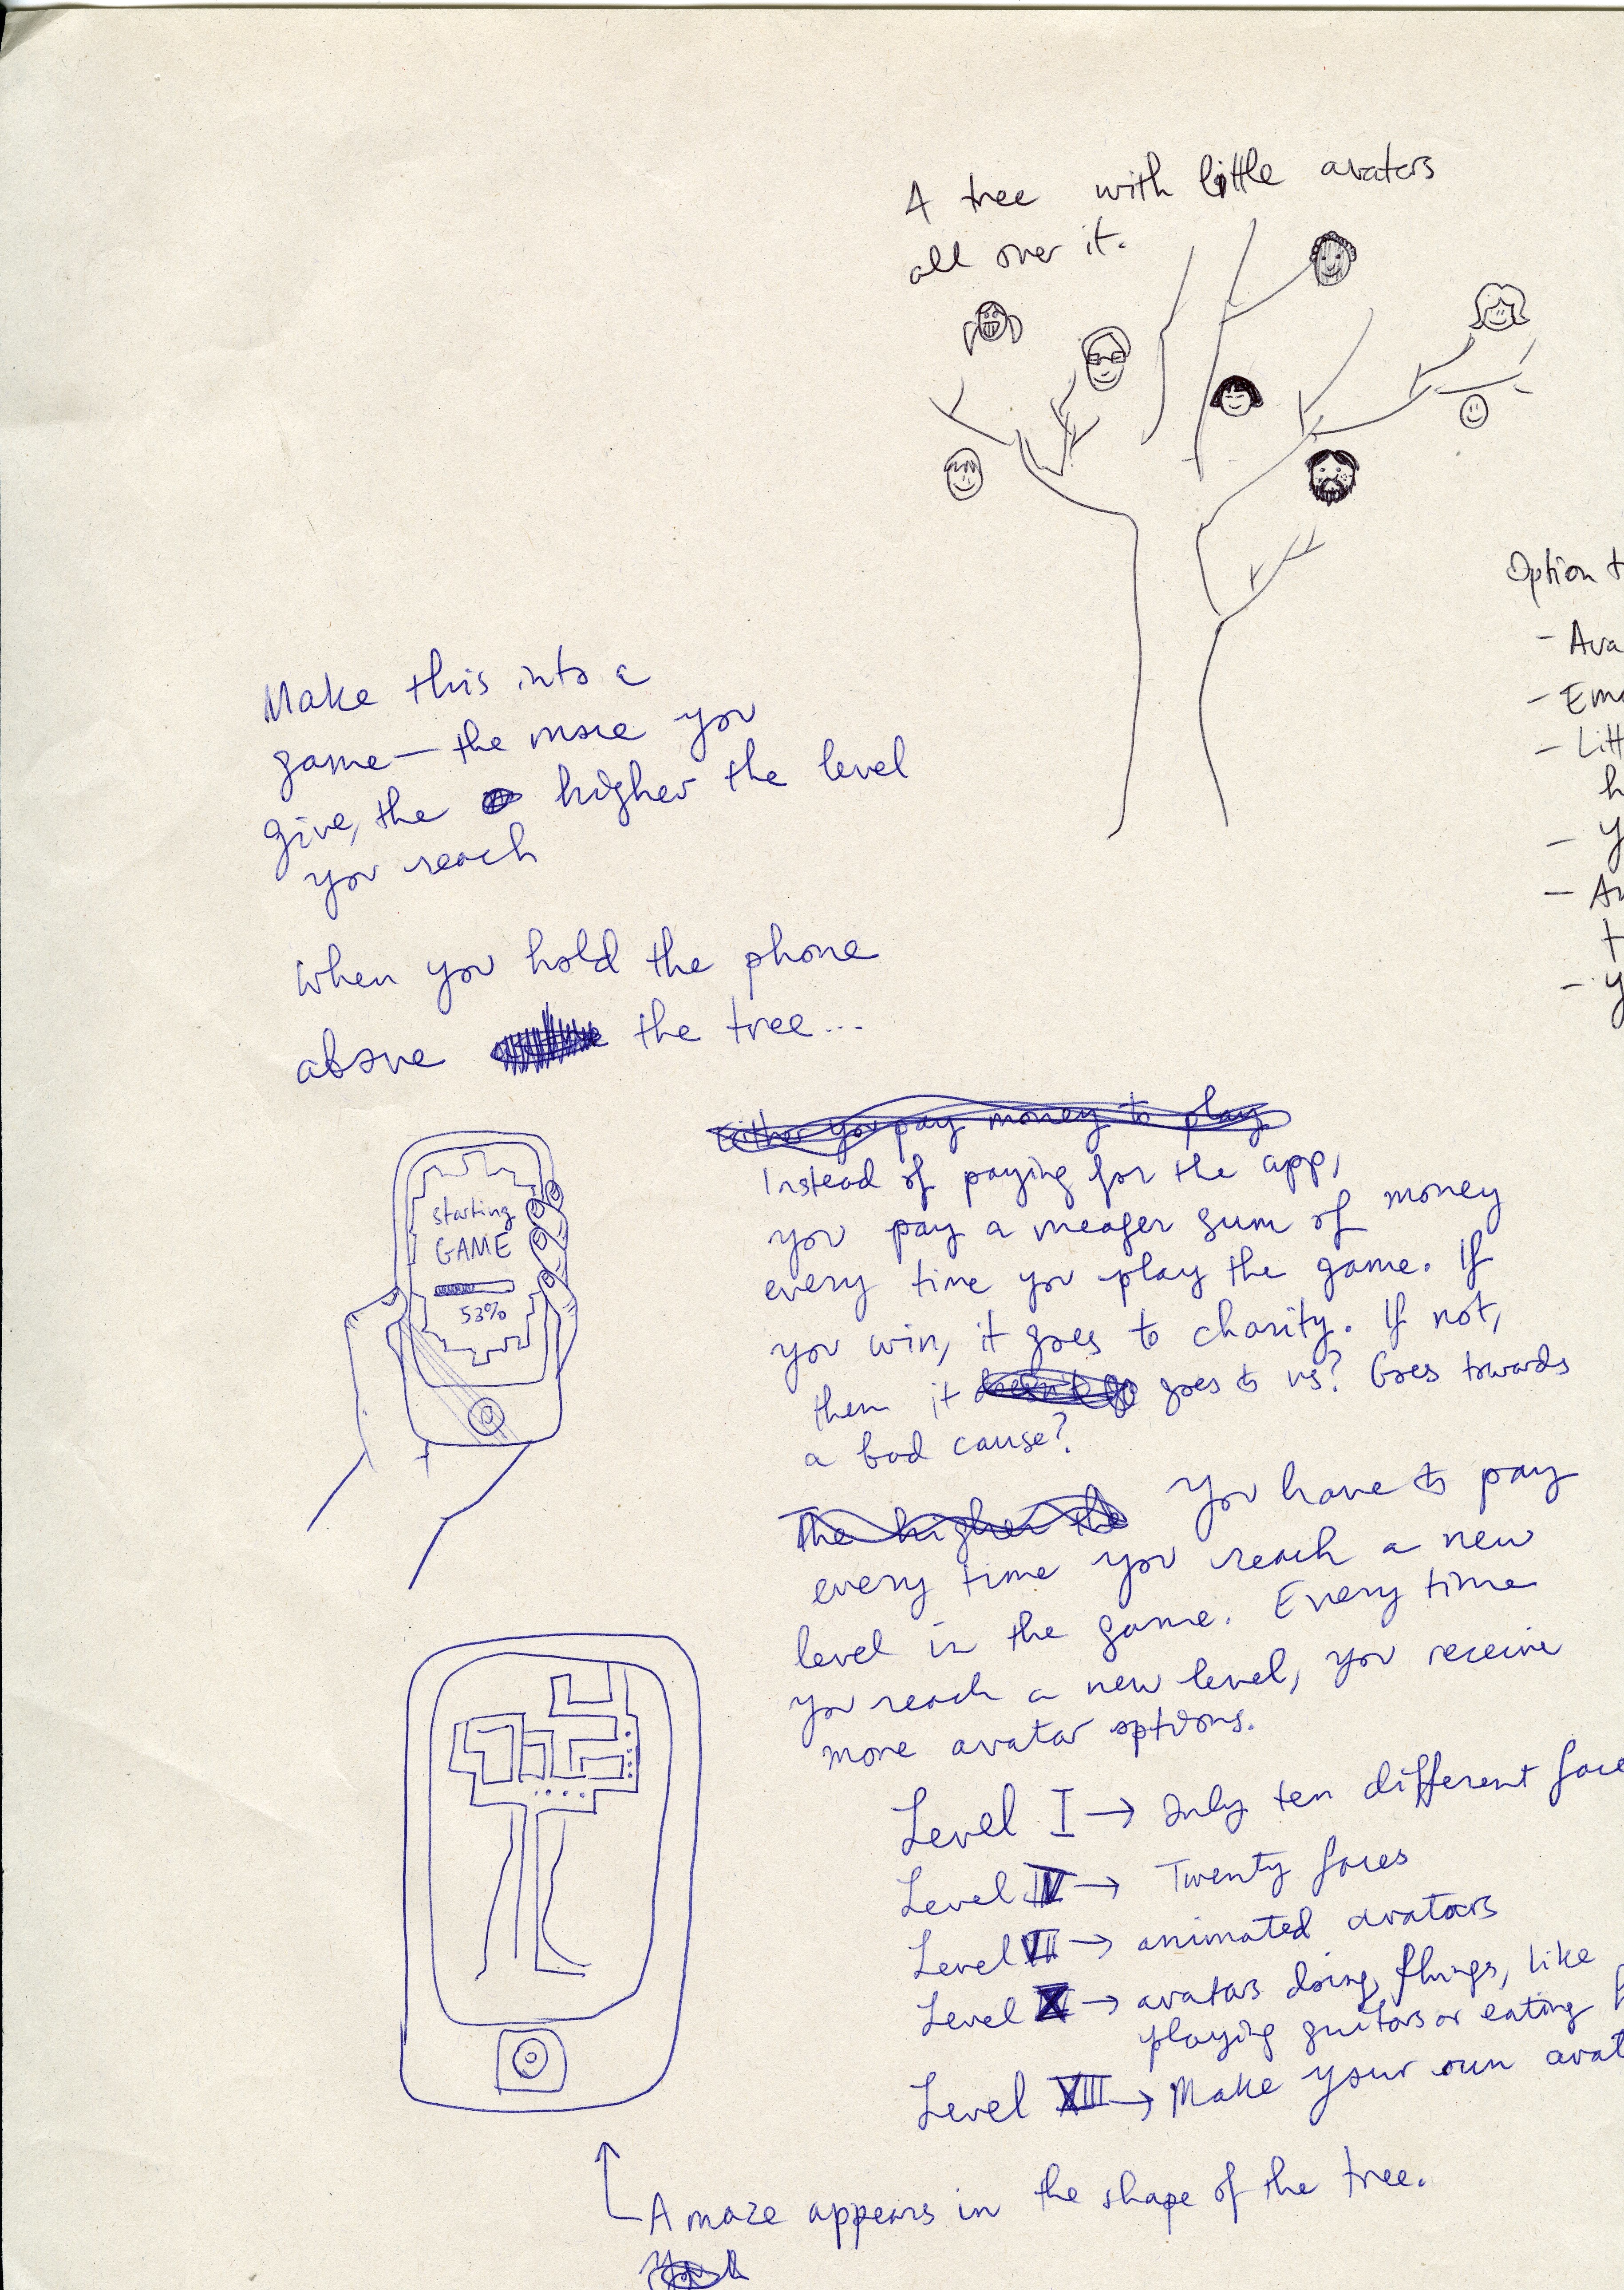 A tree with little avatars
all over it.
Option t
- Ava
- Emo
- Litt
h
- y
- An
t
- y
Make this into a
game — the more you
give, the higher the level
you reach
When you hold the phone
above the tree...
starting
GAME
53%
Either you pay money to play
Instead of paying for the app,
you pay a meager sum of money
every time you play the game. If
you win, it goes to charity. If not,
then it goes to us? Goes towards
a bad cause?
The higher the You have to pay
every time you reach a new
level in the game. Every time
you reach a new level, you receive
more avatar options.
Level I → Only ten different face
Level IV → Twenty faces
Level VII → animated avatars
Level X → avatars doing things, like
playing guitars or eating
Level XIII → Make your own avat
A maze appears in the shape of the tree.